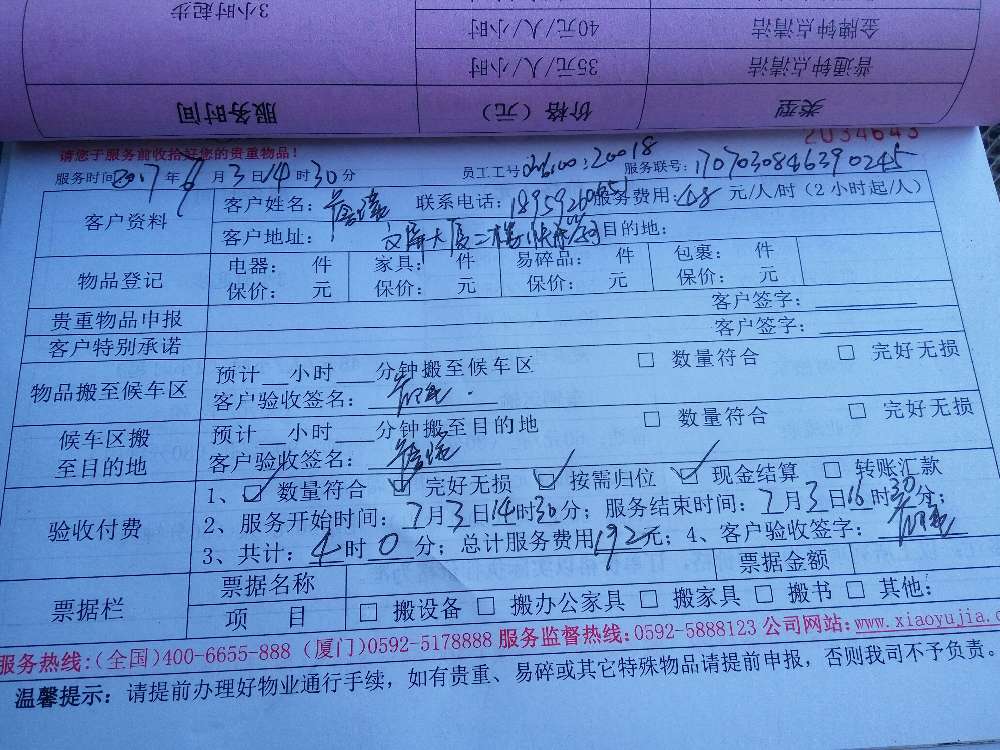 3小时起步
40元/人/小时
金牌钟点清洁
35元/人/小时
普通钟点清洁
服务时间
价格(元)
类型
2034643
请您于服务前收拾好您的贵重物品!
服务时间2017年 月3日14时30分 员工工号 :20018 服务联号:1707030846390245
客户资料 客户姓名: 联系电话: 服务费用:48 元/人/时(2小时起/人)
客户地址: 目的地:
物品登记 电器: 件 家具: 件 易碎品: 件 包裹: 件
保价: 元 保价: 元 保价: 元 保价: 元
贵重物品申报 客户签字:
客户特别承诺 客户签字:
物品搬至候车区 预计__小时___分钟搬至候车区 □ 数量符合 □ 完好无损
客户验收签名:
候车区搬至目的地 预计__小时___分钟搬至目的地 □ 数量符合 □ 完好无损
客户验收签名:
验收付费 1、☑ 数量符合 ☑ 完好无损 ☑ 按需归位 ☑ 现金结算 □ 转账汇款
2、服务开始时间:7月3日14时30分;服务结束时间:7月3日16时30分;
3、共计:4时0分;总计服务费用192元;4、客户验收签字:
票据栏 票据名称 票据金额
项 目 □ 搬设备 □ 搬办公家具 □ 搬家具 □ 搬书 □ 其他:
服务热线:(全国)400-6655-888 (厦门)0592-5178888 服务监督热线:0592-5888123 公司网站:www.xiaoyujia.c
温馨提示:请提前办理好物业通行手续,如有贵重、易碎或其它特殊物品请提前申报,否则我司不予负责。